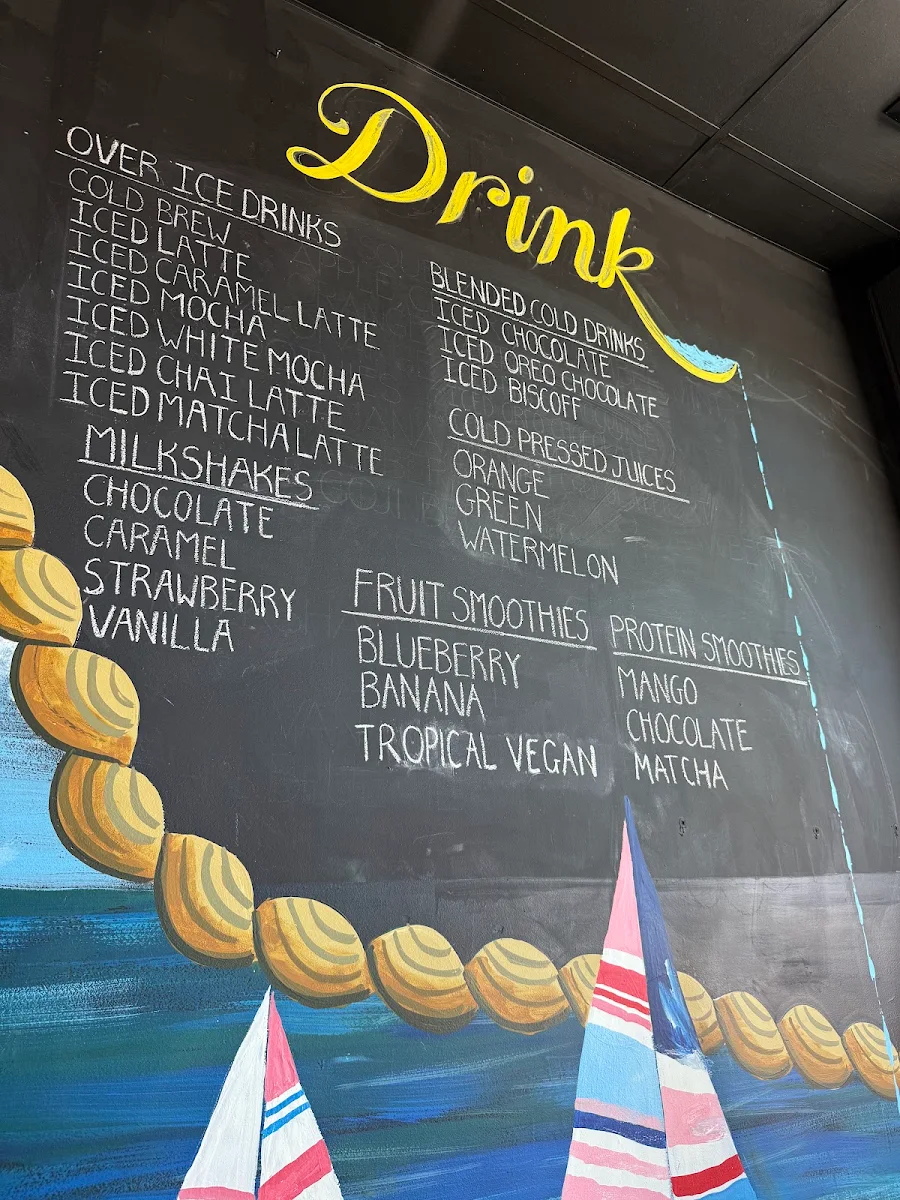 Drink
OVER ICE DRINKS
COLD BREW
ICED LATTE
ICED CARAMEL LATTE
ICED MOCHA
ICED WHITE MOCHA
ICED CHAI LATTE
ICED MATCHA LATTE
MILKSHAKES
CHOCOLATE
CARAMEL
STRAWBERRY
VANILLA
BLENDED COLD DRINKS
ICED CHOCOLATE
ICED OREO CHOCOLATE
ICED BISCOFF
COLD PRESSED JUICES
ORANGE
GREEN
WATERMELON
FRUIT SMOOTHIES
BLUEBERRY
BANANA
TROPICAL VEGAN
PROTEIN SMOOTHIES
MANGO
CHOCOLATE
MATCHA